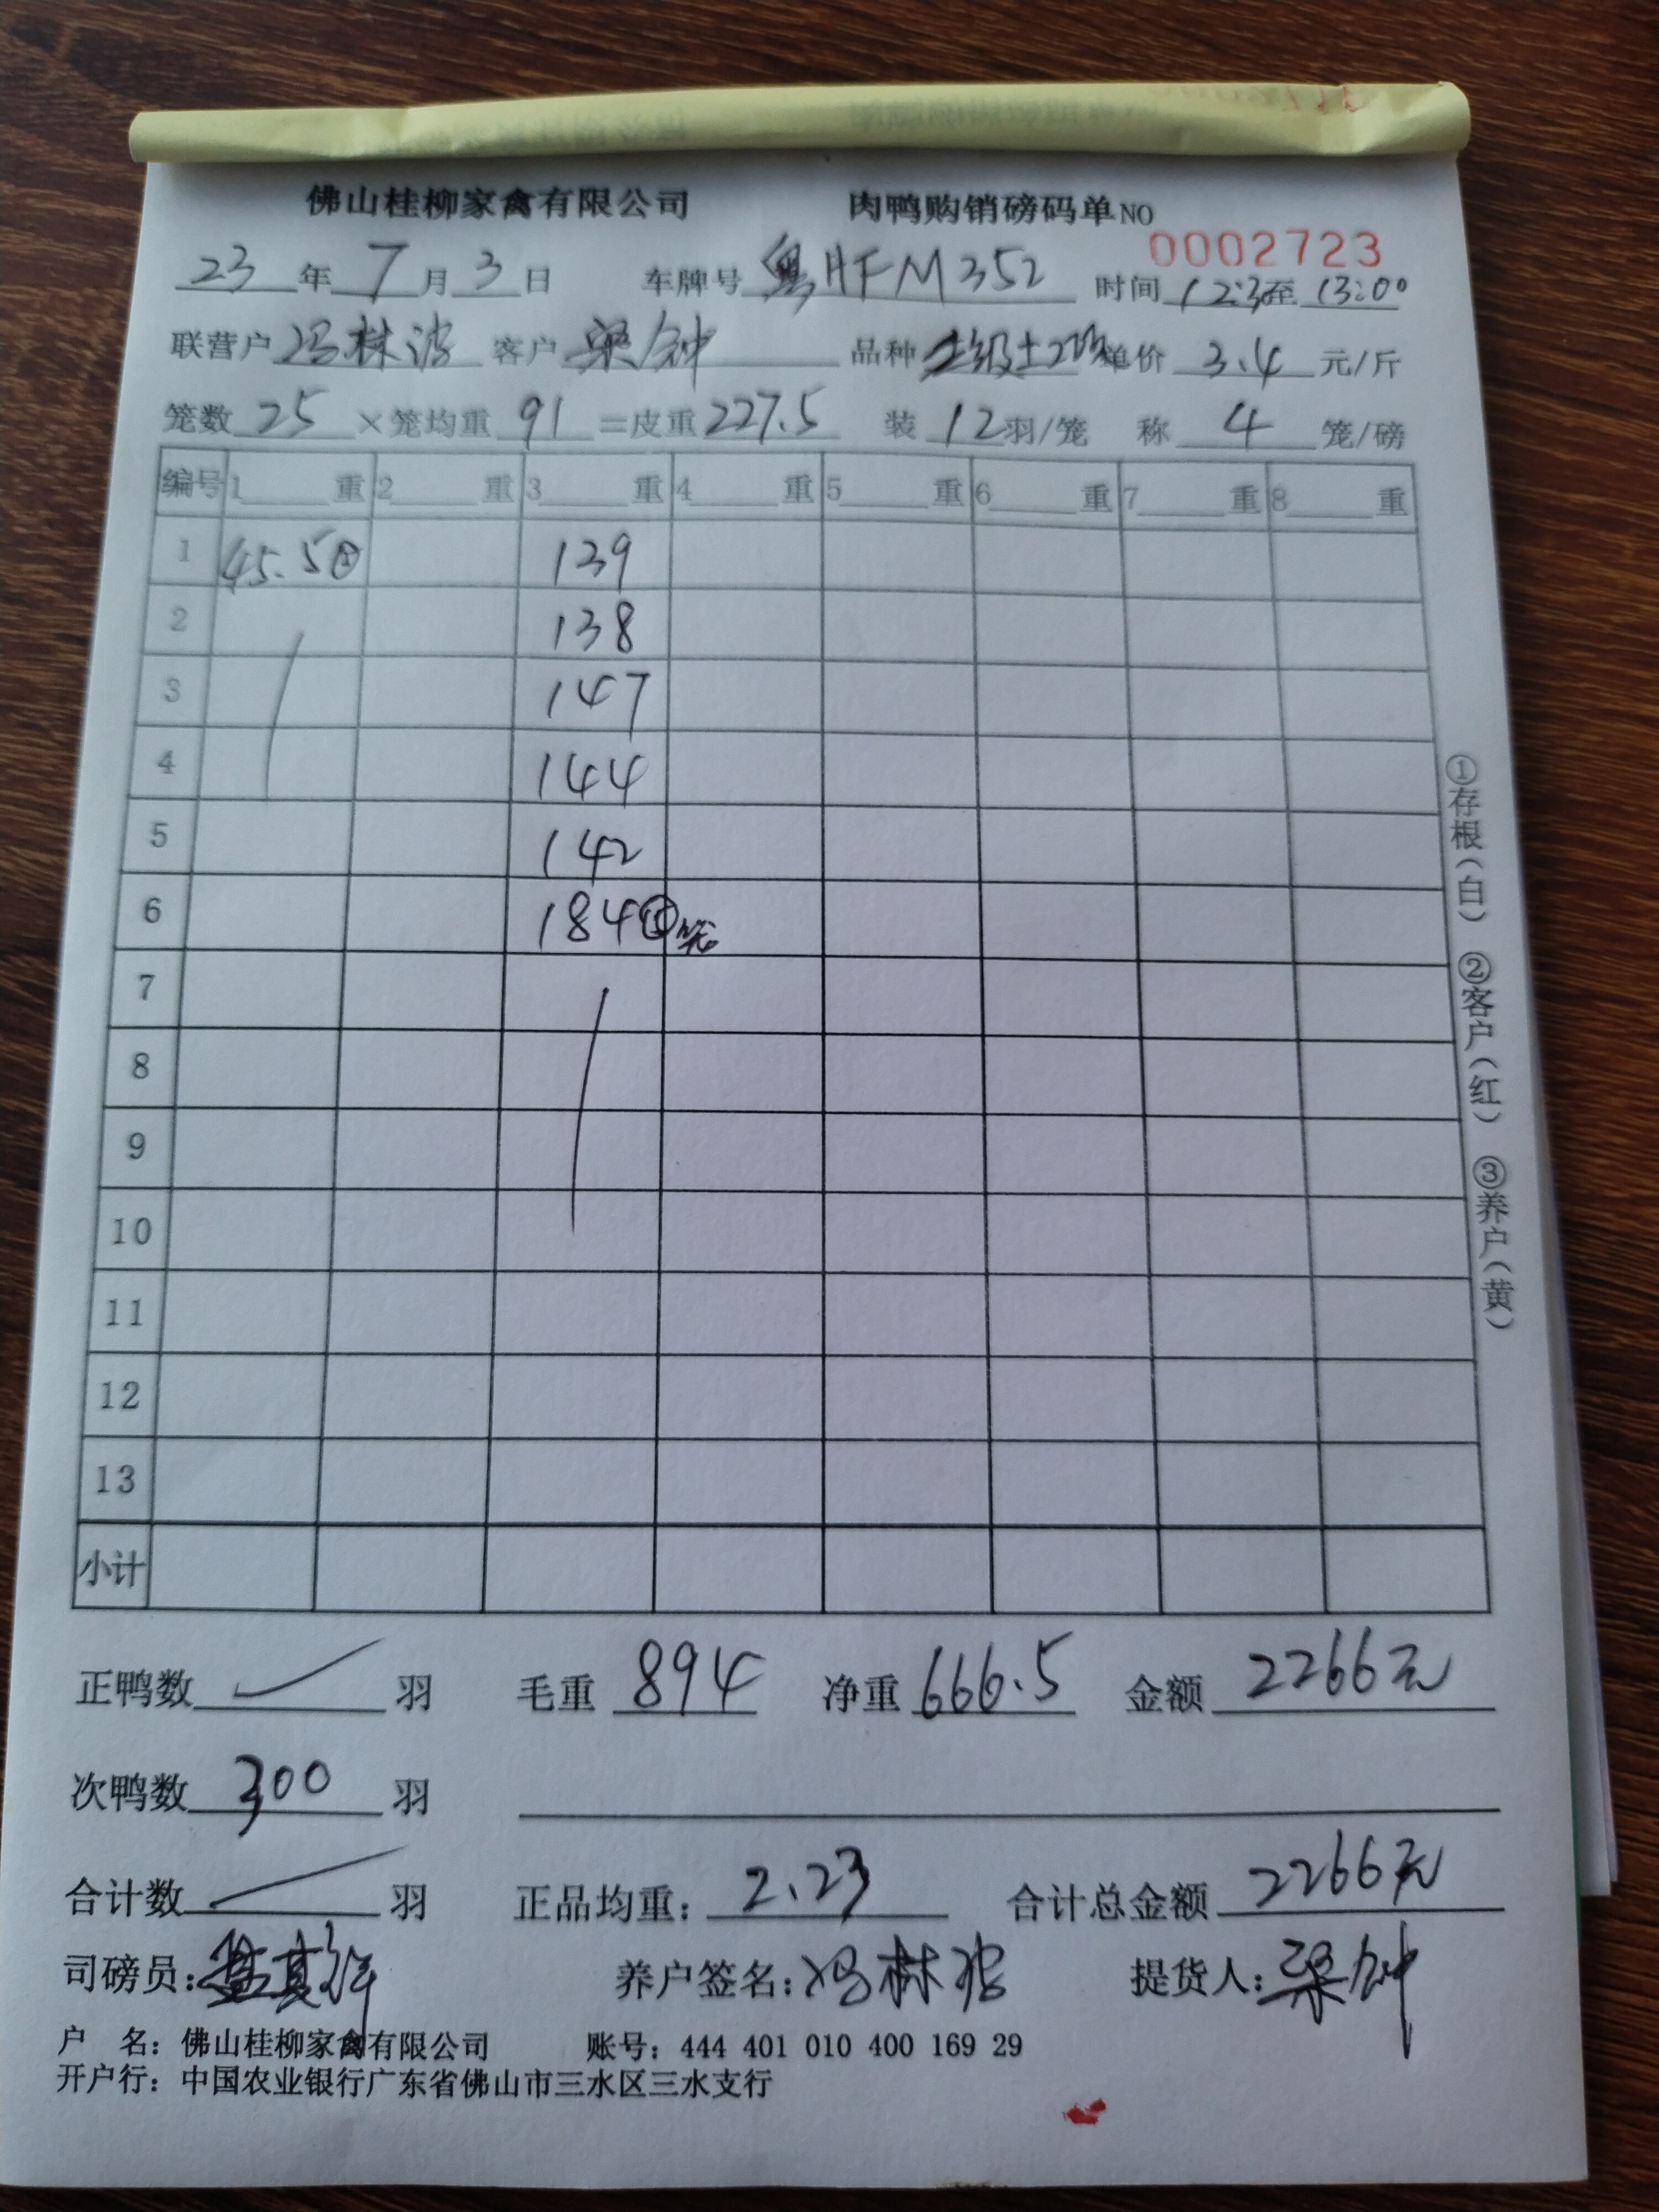 佛山桂柳家禽有限公司 肉鸭购销磅码单NO 0002723
23年7月3日 车牌号 粤HFM352 时间 12:3至13:00
联营户 冯林波 客户 梁钟 品种 单价 3.4 元/斤
笼数 25 ×笼均重 91 =皮重 227.5 装 12 羽/笼 称 4 笼/磅
编号 1 重 2 重 3 重 4 重 5 重 6 重 7 重 8 重
1 45.5 139
2 138
3 147
4 144
5 142
6 184 ⑤笼
7
8
9
10
11
12
13
小计
正鸭数 羽 毛重 894 净重 666.5 金额 2266元
次鸭数 300 羽
合计数 羽 正品均重: 2.23 合计总金额 2266元
司磅员: 养户签名: 冯林波 提货人: 梁钟
户 名: 佛山桂柳家禽有限公司 账号: 444 401 010 400 169 29
开户行: 中国农业银行广东省佛山市三水区三水支行
①存根(白) ②客户(红) ③养户(黄)